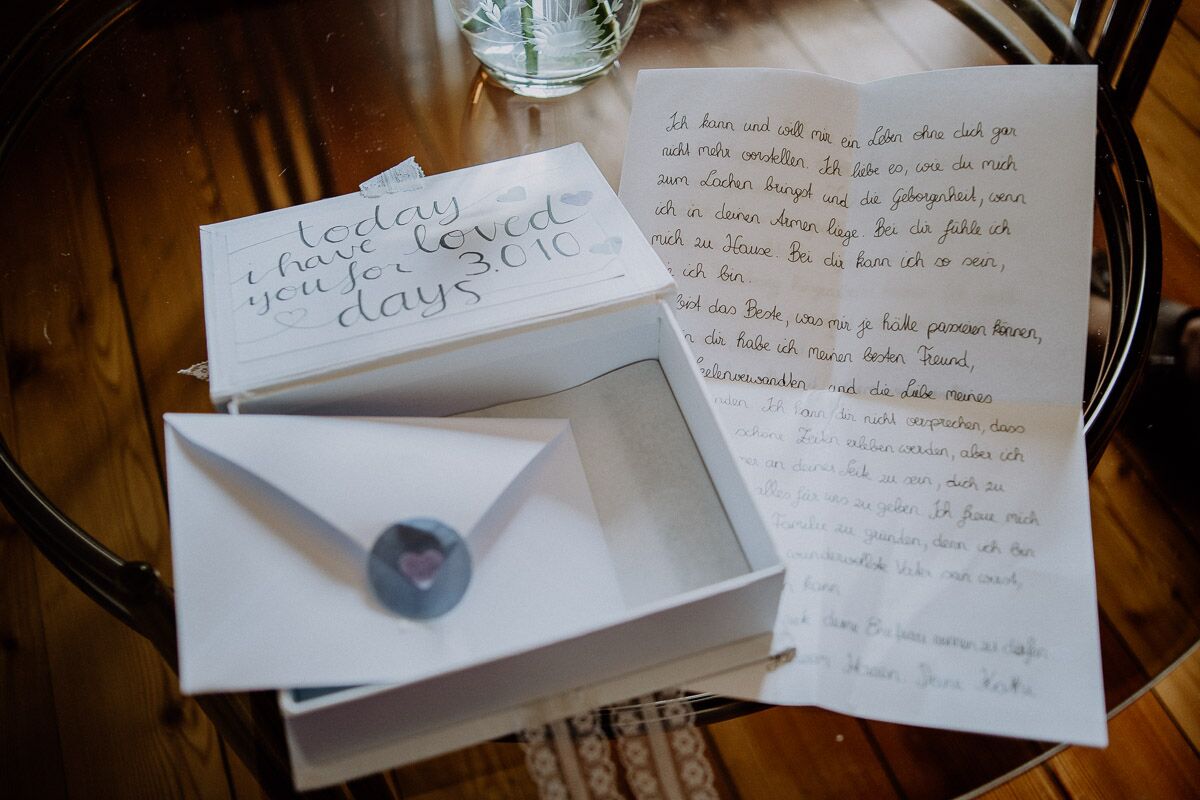 today
i have loved
you for 3.010
days
Ich kann und will mir ein Leben ohne dich gar
nicht mehr vorstellen. Ich liebe es, wie du mich
zum Lachen bringst und die Geborgenheit, wenn
ich in deinen Armen liege. Bei dir fühle ich
mich zu Hause. Bei dir kann ich so sein,
ich bin.
bist das Beste, was mir je hätte passieren können,
dir habe ich meinen besten Freund,
eelenverwandten und die Liebe meines
nden. Ich kann dir nicht versprechen, dass
schöne Zeiten erleben werden, aber ich
mer an deiner Seite zu sein, dich zu
alles für uns zu geben. Ich freue mich
Familie zu gründen, denn ich bin
wundervollste Vater sein wirst,
kann
deine Ehefrau nennen zu dürfen
Deine